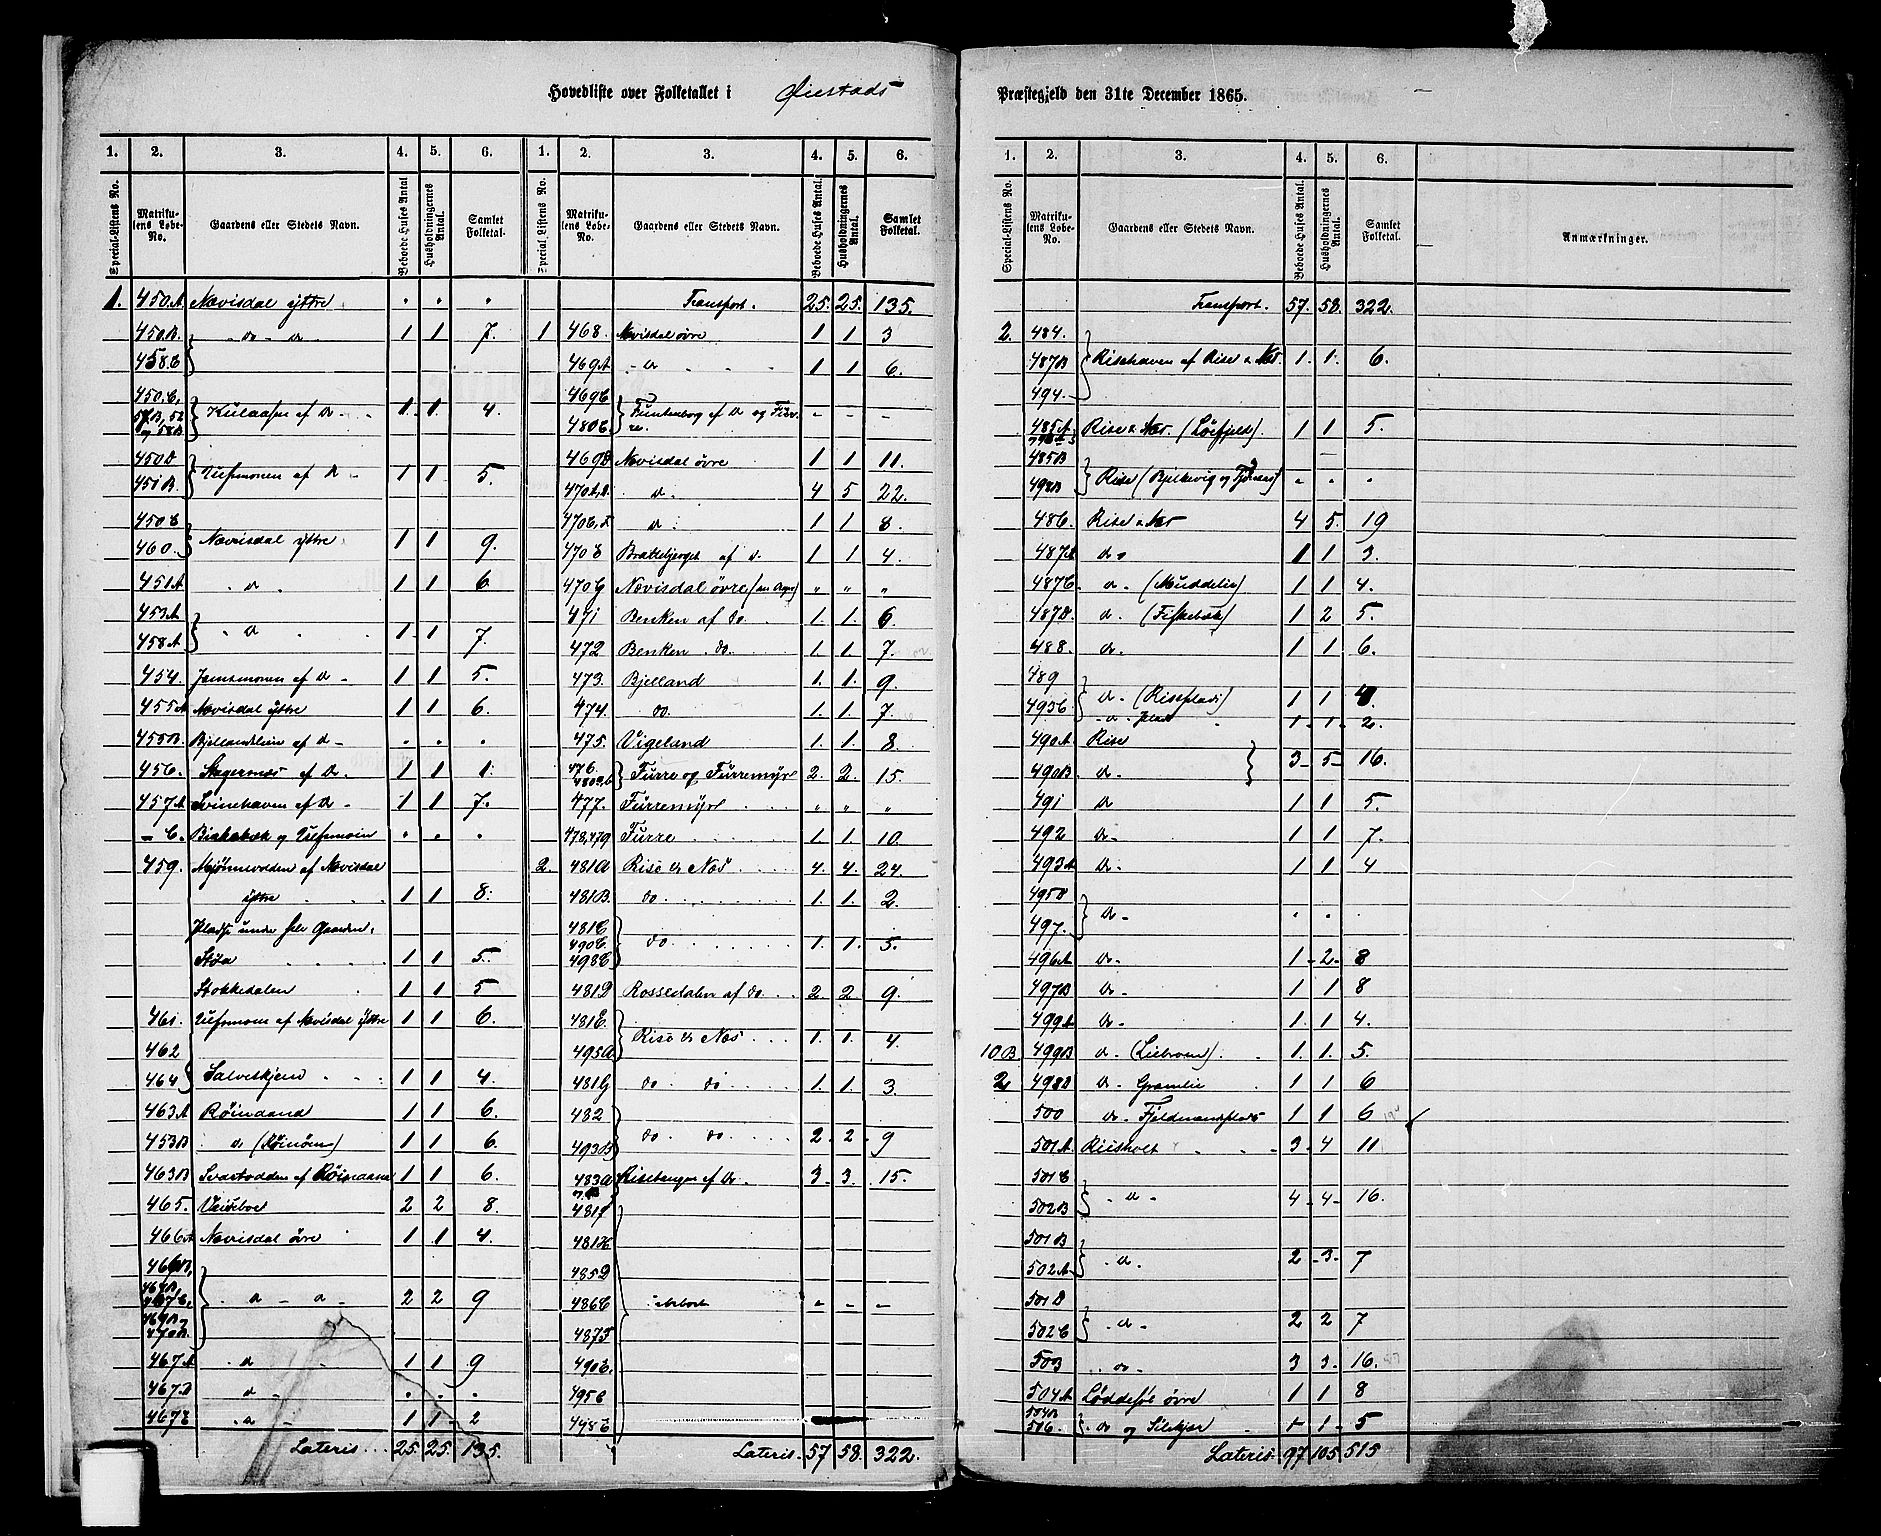 Hovedliste over Folketallet i Øiestads
1. 2. 3. 4. 5. 6. 1. 2. 3. 4. 5. 6.
Special-Listens No. Matrikulens Løbe-No. Gaardens eller Stedets Navn. Beboede Huses Antal Husholdningernes Antal. Samlet Folketal. Special-Listens No. Matrikulens Løbe-No. Gaardens eller Stedets Navn. Beboede Huses Antal. Husholdningernes Antal. Samlet Folketal.
1. 450.A Nævisdal ÿttre " " "
450.B. " do " do 1 1 7.
458.C
450.C, 57B, 52 og 58B Kulaasen af do 1. 1. 4.
450D 451B. Uufsmonen af do 1 1 5.
450E 460. Nævisdal ÿttre 1 1 9.
451A " do 1 1 6.
453A 458A " do 1 1 7.
454. Jomsmonen af do 1 1 5.
455A Nævisdal ÿttre 1 1 6.
455B. Bjellandsleien af do " " "
456. Stegernæs af do 1 1 1.
457A Svinehaven af do 1 1 7.
- C. Birkebæk og Uufsmoen " " "
459. Mjønnevolden af Nævisdal
ÿttre 1 1 8.
Pladse under hele Gaarden.
Støa 1 1 5.
Stokkedalen 1 1 5
461. Uufsmoen af Nævisdal ÿttre 1 1 6.
462 464 Salveskjend 1 1 4.
463A Røinaand 1 1 6.
453B do (Røinøen) 1 1 6.
463B Svartodden af Røinaand 1 1 6.
465. Veiseboet 2 2 8.
466A Nævisdal øvre 1 1 4.
466B, 467B, 467C, 469B, 470B. " do - do - 2 2 9
467A " do 1 1 9
467D do - " " "
467E " do - 1 1 2
Lateris 25. 25. 135.
Transport. 25. 25. 135.
1 468. Nævisdal øvre 1 1 3
469A - do 1 1 6.
469C 480C Funtenbog af do og Furre. - - -
469D Nævisdal øvre 1 1 11.
470A,D. do. 4 5 22.
470E,F do 1 1 8.
470C Brattebjerget af do 1 1 4
470G Nævisdal øvre " " "
471 Benken af do. 1. 1. 6
472 Benken do. 1. 1 7.
473. Bjelland 1. 1. 9.
474. do. 1. 1. 7.
475. Vigeland 1. 1. 8.
476. 480A,B Furre og Furremÿr 2. 2. 15.
477. Furremÿr " " "
478,479 Furre 1. 1. 10.
2. 481A Rise & Næs 4. 4. 24.
481B. do. 1 1. 2.
481C 490C 498C do. 1. 1. 5.
481D Rossedalen af do. 2. 2. 9.
481E. 495A Rise & Næs 1. 1. 4.
481G do do 1. 1. 3.
482 493B do do. 2. 2. 9
483A Risehaugen af do. 3. 3. 15.
481F
481H
485D
486C ubeboet - - -
487F
490E.
495C
498E
Lateris. 57 58. 322.
Præstegjeld den 31te December 1865.
1. 2. 3. 4. 5. 6.
Special-Listens No. Matrikulens Løbe-No. Gaardens eller Stedets Navn. Beboede Huses Antal. Husholdningernes Antal. Samlet Folketal. Anmærkninger.
Transport. 57. 58. 322.
2. 484. 487B 494. Risehaven af Rise & Næs 1. 1. 6.
485A Rise & Næs. (Løefjeld). 1 1 5.
485B 498B Rise (Bjelkevig og Fjelnæs) " " "
486. Rise & Næs 4 5. 19
487A do. 1 1 3.
487C do. (Muddelie) 1 1 4.
487D. do. (Fiskebæk) 1 2 5.
488. do. 1 1 6.
489 493C do. (Riseplads) 1 1 4.
- do. Plads 1 - 1 - 2.
490A. 490B Rise do. 3 - 5 - 16.
491 do 1 1 5.
492 do. 1 1 7.
493A do. 1 1 4
495D 497. do. " " "
496A do. 1 - 2 - 8
497B do. 1 1 8
499A do. 1. 1 4.
10B 499B do. 1. 1. 5.
2 498D do. Gramlie 1 1 6
500 do. Fjeldmandsplads 1 1 6
501A Riisholt 3 - 4 11
501C 502B " do - 4 - 4 - 16.
501B 502A " do. 2 - 3 - 7
501D 502C " do - 2 2 7
503 " do. 3 3 - 16.
504A Løddesøl øvre 1 1 8
504B 506. do og Silekjær 1 - 1 - 5
Lateris. 97 105 515